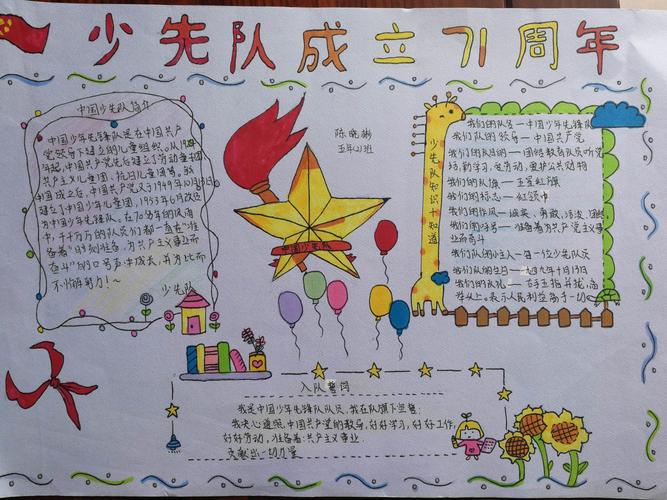 少先队成立71周年
中国少先队简介
中国少年先锋队是在中国共产
党领导下建立的儿童组织。从1924
年起,中国共产党先后建立了劳动童子团
共产主义儿童团、抗日儿童团等。新
中国成立之后,中国共产党又于1949年10月13日
建立了中国少年儿童团,1953年6月改
为中国少年先锋队。在70多年的风雨
中,千千万万的队员们都一直在"准
备着"时刻准备,为共产主义事业而
奋斗"的口号声中成长,并为此而
不懈努力!~
少先队
陈晓彬
五年(2)班
中国少先队
少先队知识十知道
我们的队名——中国少年先锋队
我们队的领导——中国共产党
我们队的目的——团结教育队员听党
话,勤学习,爱劳动,爱护公共财物
我们的队旗——五星红旗
我们的标志——红领巾
我们的作风——诚实、勇敢、活泼、团结
我们的呼号——准备着为共产主义事
业而奋斗
我们队的小主人——每一位少先队员
我们队的生日——一九四九年10月13日
我们的队礼——右手五指并拢,高
举头上。表示人民利益高于一切
入队誓词
我是中国少年先锋队队员,我在队旗下宣誓:
我决心遵照中国共产党的教导,好好学习,好好工作,
好好劳动,准备着:为共产主义事业,
贡献出一切力量